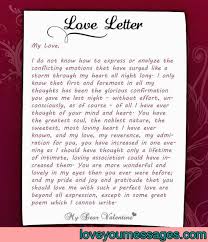 Love Letter
My Love,
I do not know how to express or analyze the
conflicting emotions that have surged like a
storm through my heart all night long. I only
know that first and foremost in all my
thoughts has been the glorious confirmation
you gave me last night - without effort, un-
consciously, as of course - of all I have ever
thought of your mind and heart. You have the
greatest soul, the noblest nature, the
sweetest, most loving heart I have ever
known, and my love, my reverence, my admi-
ration for you, have increased in one even-
ing as I should have thought only a lifetime
of intimate, loving association could have in-
creased them. You are more wonderful and
lovely in my eyes than you ever were before;
and my pride and joy and gratitude that you
should love me with such a perfect love are
beyond all expression, except in some great
poem which I cannot write.
My Dear Valentine
loveyoumessages.com